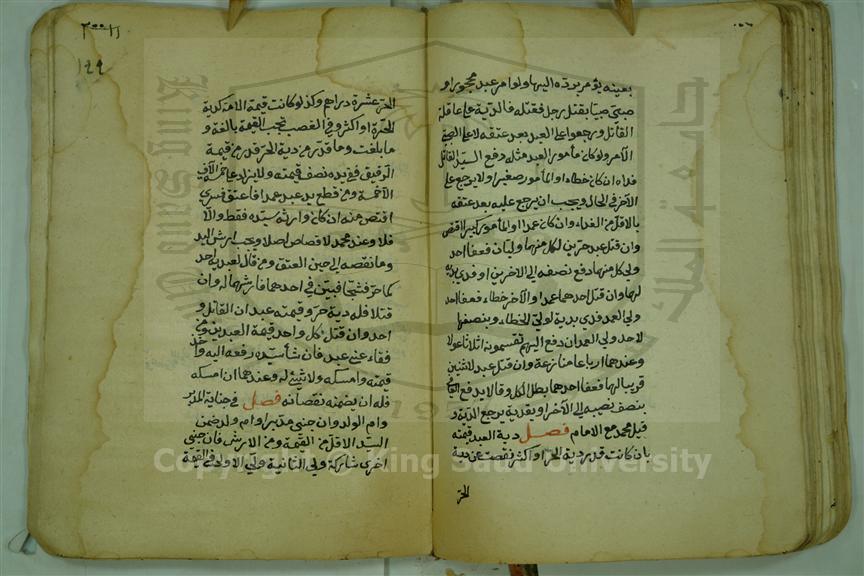 بعينه يؤمر بدفعه اليها ولو امر عبد محجور او
صبي صبيا بقتل رجل فقتله فالدية على عاقلة
القاتل ورجعوا على العبد بعد عتقه لا على الصبي
الآمر ولو كان مأمور العبد مثله دفع السيد القاتل
فداه ان كان خطاء او المأمور صغيرا ولا يرجع على
الآخر في الحال ويجب ان يرجع عليه بعد عتقه
بالاقل من الفداء وان كان عمدا والمأمور كبيرا اقتص
وان قتل عبد حرين لكل منهما وليان فعفا احد
وليي كل منهما دفع نصفه الى الاخرين او فدي بدية
لهما وان قتل احدهما عمدا والآخر خطاء فعفا احد
وليي العمد فدي بدية لوليي الخطاء وبنصفها
لاحد وليي العمد ان دفع اليهم تقسمونه اثلاثا عولا
وعندهما ارباعا منازعة وان قتل عبد لاثنين
قريبا لهما فعفا احدهما بطل الكل وقالا يدفع
بنصف نصيبه الى الآخر او يفديه بربع الدية و
قيل محمد مع الامام فصل دية العبد قيمته
بان كانت قدر دية الحر او اكثر نقصت عن دية
الحر
٢٠٠
١٩٩
الحر عشرة دراهم وكذ لو كانت قيمة الامة كدية
الحرة او اكثر وفي الغصب تجب القيمة بالغة و
ما بلغت وما قدر من دية الحر قدر من قيمة
الرقيق ففي يده نصف قيمته ولا يزاد على خمسة آلاف
الا خمسة ومن قطع يد عبد عمدا فاعتق فسرى
اقتص منه ان كان وارثه سيده فقط والا
فلا وعند محمد لا قصاص اصلا ويجب ارش اليد
وما نقصه الى حين العتق ومن قال لعبديه احد
كما حر فشجا فبين في احدهما فارشهما له وان
قتلا فله دية حر وقيمة عبد ان القاتل و
احد وان قتل كل واحد قيمة العبدين ومن
فقاء عيني عبد فان شاء سيده دفعه اليه واخذ
قيمته او امسكه ولا شيء له وعندهما ان امسكه
فله ان يضمنه نقصانه فصل في جناية المدبر
وام الولد وان جنى مدبر او ام ولد ضمن
السيد الاقل من القيمة ومن الارش فان جنى
اخرى شارك ولي الثانية ولي الاولى في القيمة
جامعة الملك سعود
King Saud University
1957
Copyright © King Saud University